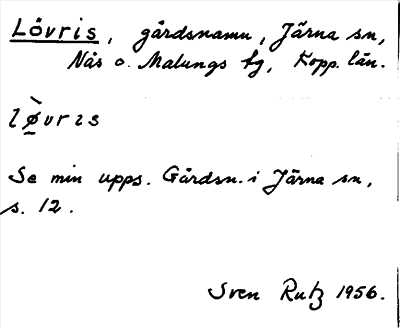 Lövris, gårdsnamn, Järna sn,
Nås o. Malungs tg, Kopp. län.
lø̱̀vrɪs
Se min upps. Gårdsn. i Järna sn,
s. 12.
Sven Rutz 1956.